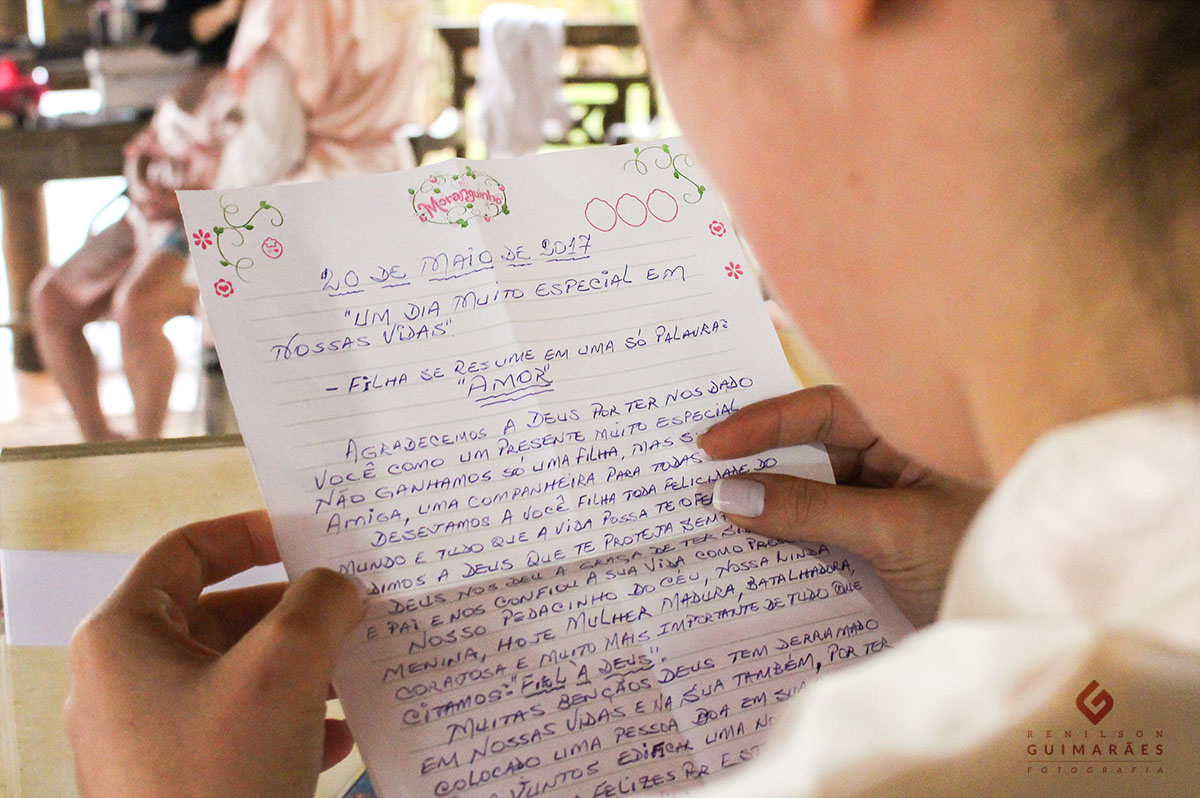 Moranguinho
20 DE MAIO DE 2017
"UM DIA MUITO ESPECIAL EM
NOSSAS VIDAS".
- FILHA SE RESUME EM UMA SÓ PALAVRA:
"AMOR"
AGRADECEMOS A DEUS POR TER NOS DADO
VOCÊ COMO UM PRESENTE MUITO ESPECIAL
NÃO GANHAMOS SÓ UMA FILHA, MAS
AMIGA, UMA COMPANHEIRA PARA TODAS
DESEJAMOS A VOCÊ FILHA TODA FELICIDADE DO
MUNDO E TUDO QUE A VIDA POSSA TE
DIMOS A DEUS QUE TE PROTEJA
DEUS NOS DEU A GRAÇA DE TER
E PAI E NOS CONFIOU A SUA VIDA COMO
NOSSO PEDACINHO DO CÉU, NOSSA LINDA
MENINA, HOJE MULHER MADURA, BATALHADORA,
CORAJOSA E MUITO MAIS IMPORTANTE DE TUDO QUE
CITAMOS: "FIEL À DEUS".
MUITAS BENÇÃOS DEUS TEM DERRAMADO
EM NOSSAS VIDAS E NA SUA TAMBÉM, POR TER
COLOCADO UMA PESSOA BOA EM SUA
JUNTOS EDIFICAR UMA
FELIZES POR
RENILSON
GUIMARÃES
FOTOGRAFIA